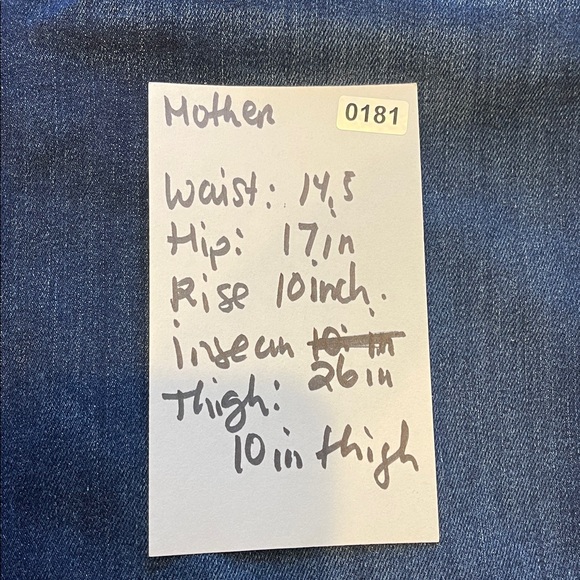 Mother
0181
Waist: 14,5
Hip: 17in
Rise 10inch.
inseam 10 in
26in
Thigh:
10in thigh